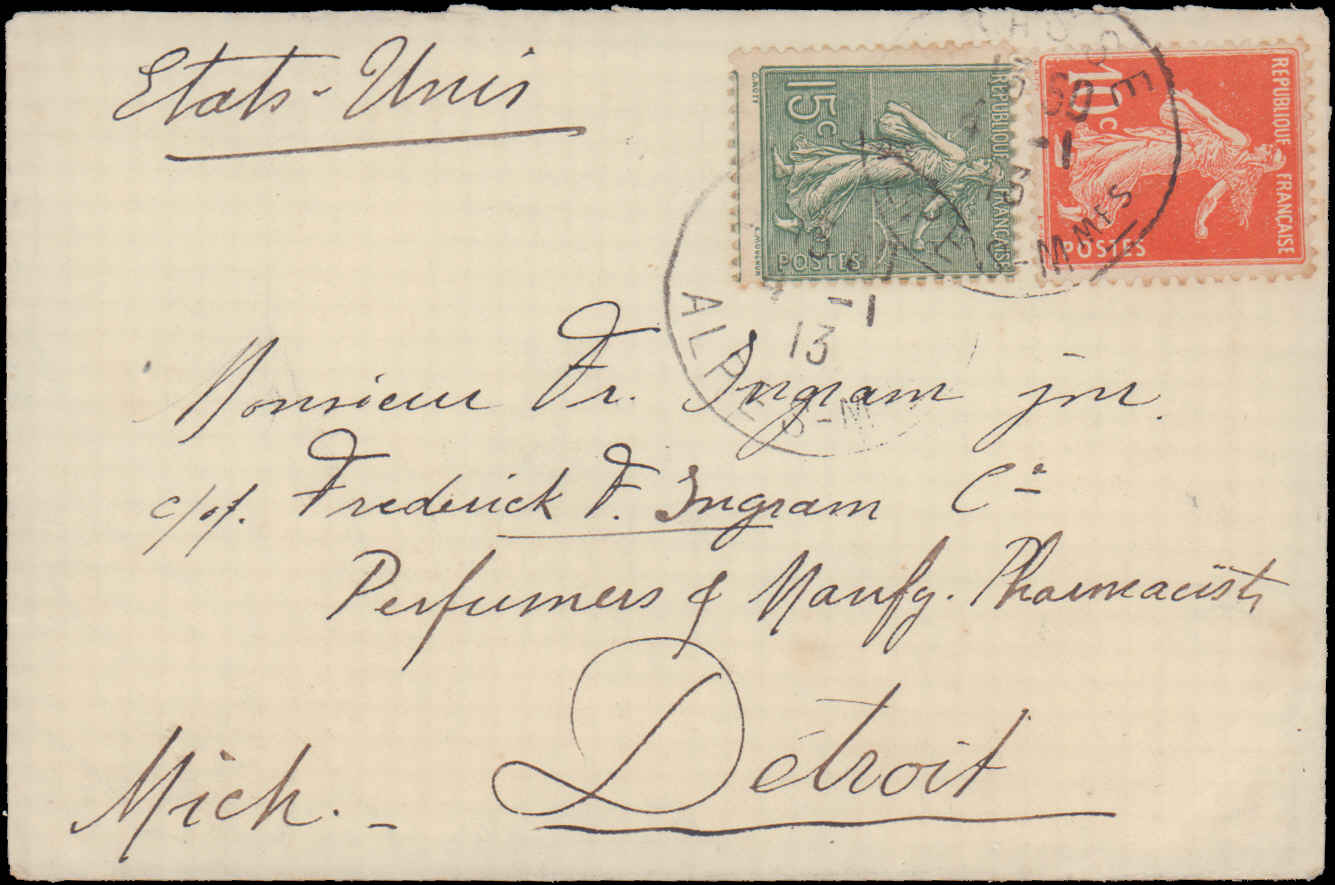 Etats-Unis
15c
REPUBLIQUE FRANÇAISE
POSTES
10c
REPUBLIQUE FRANÇAISE
POSTES
-1
13
ALPES-M
Monsieur Fr. Ingram jnr.
c/of. Frederick F. Ingram Co
Perfumers & Manfg. Pharmacists
Détroit
Mich.-